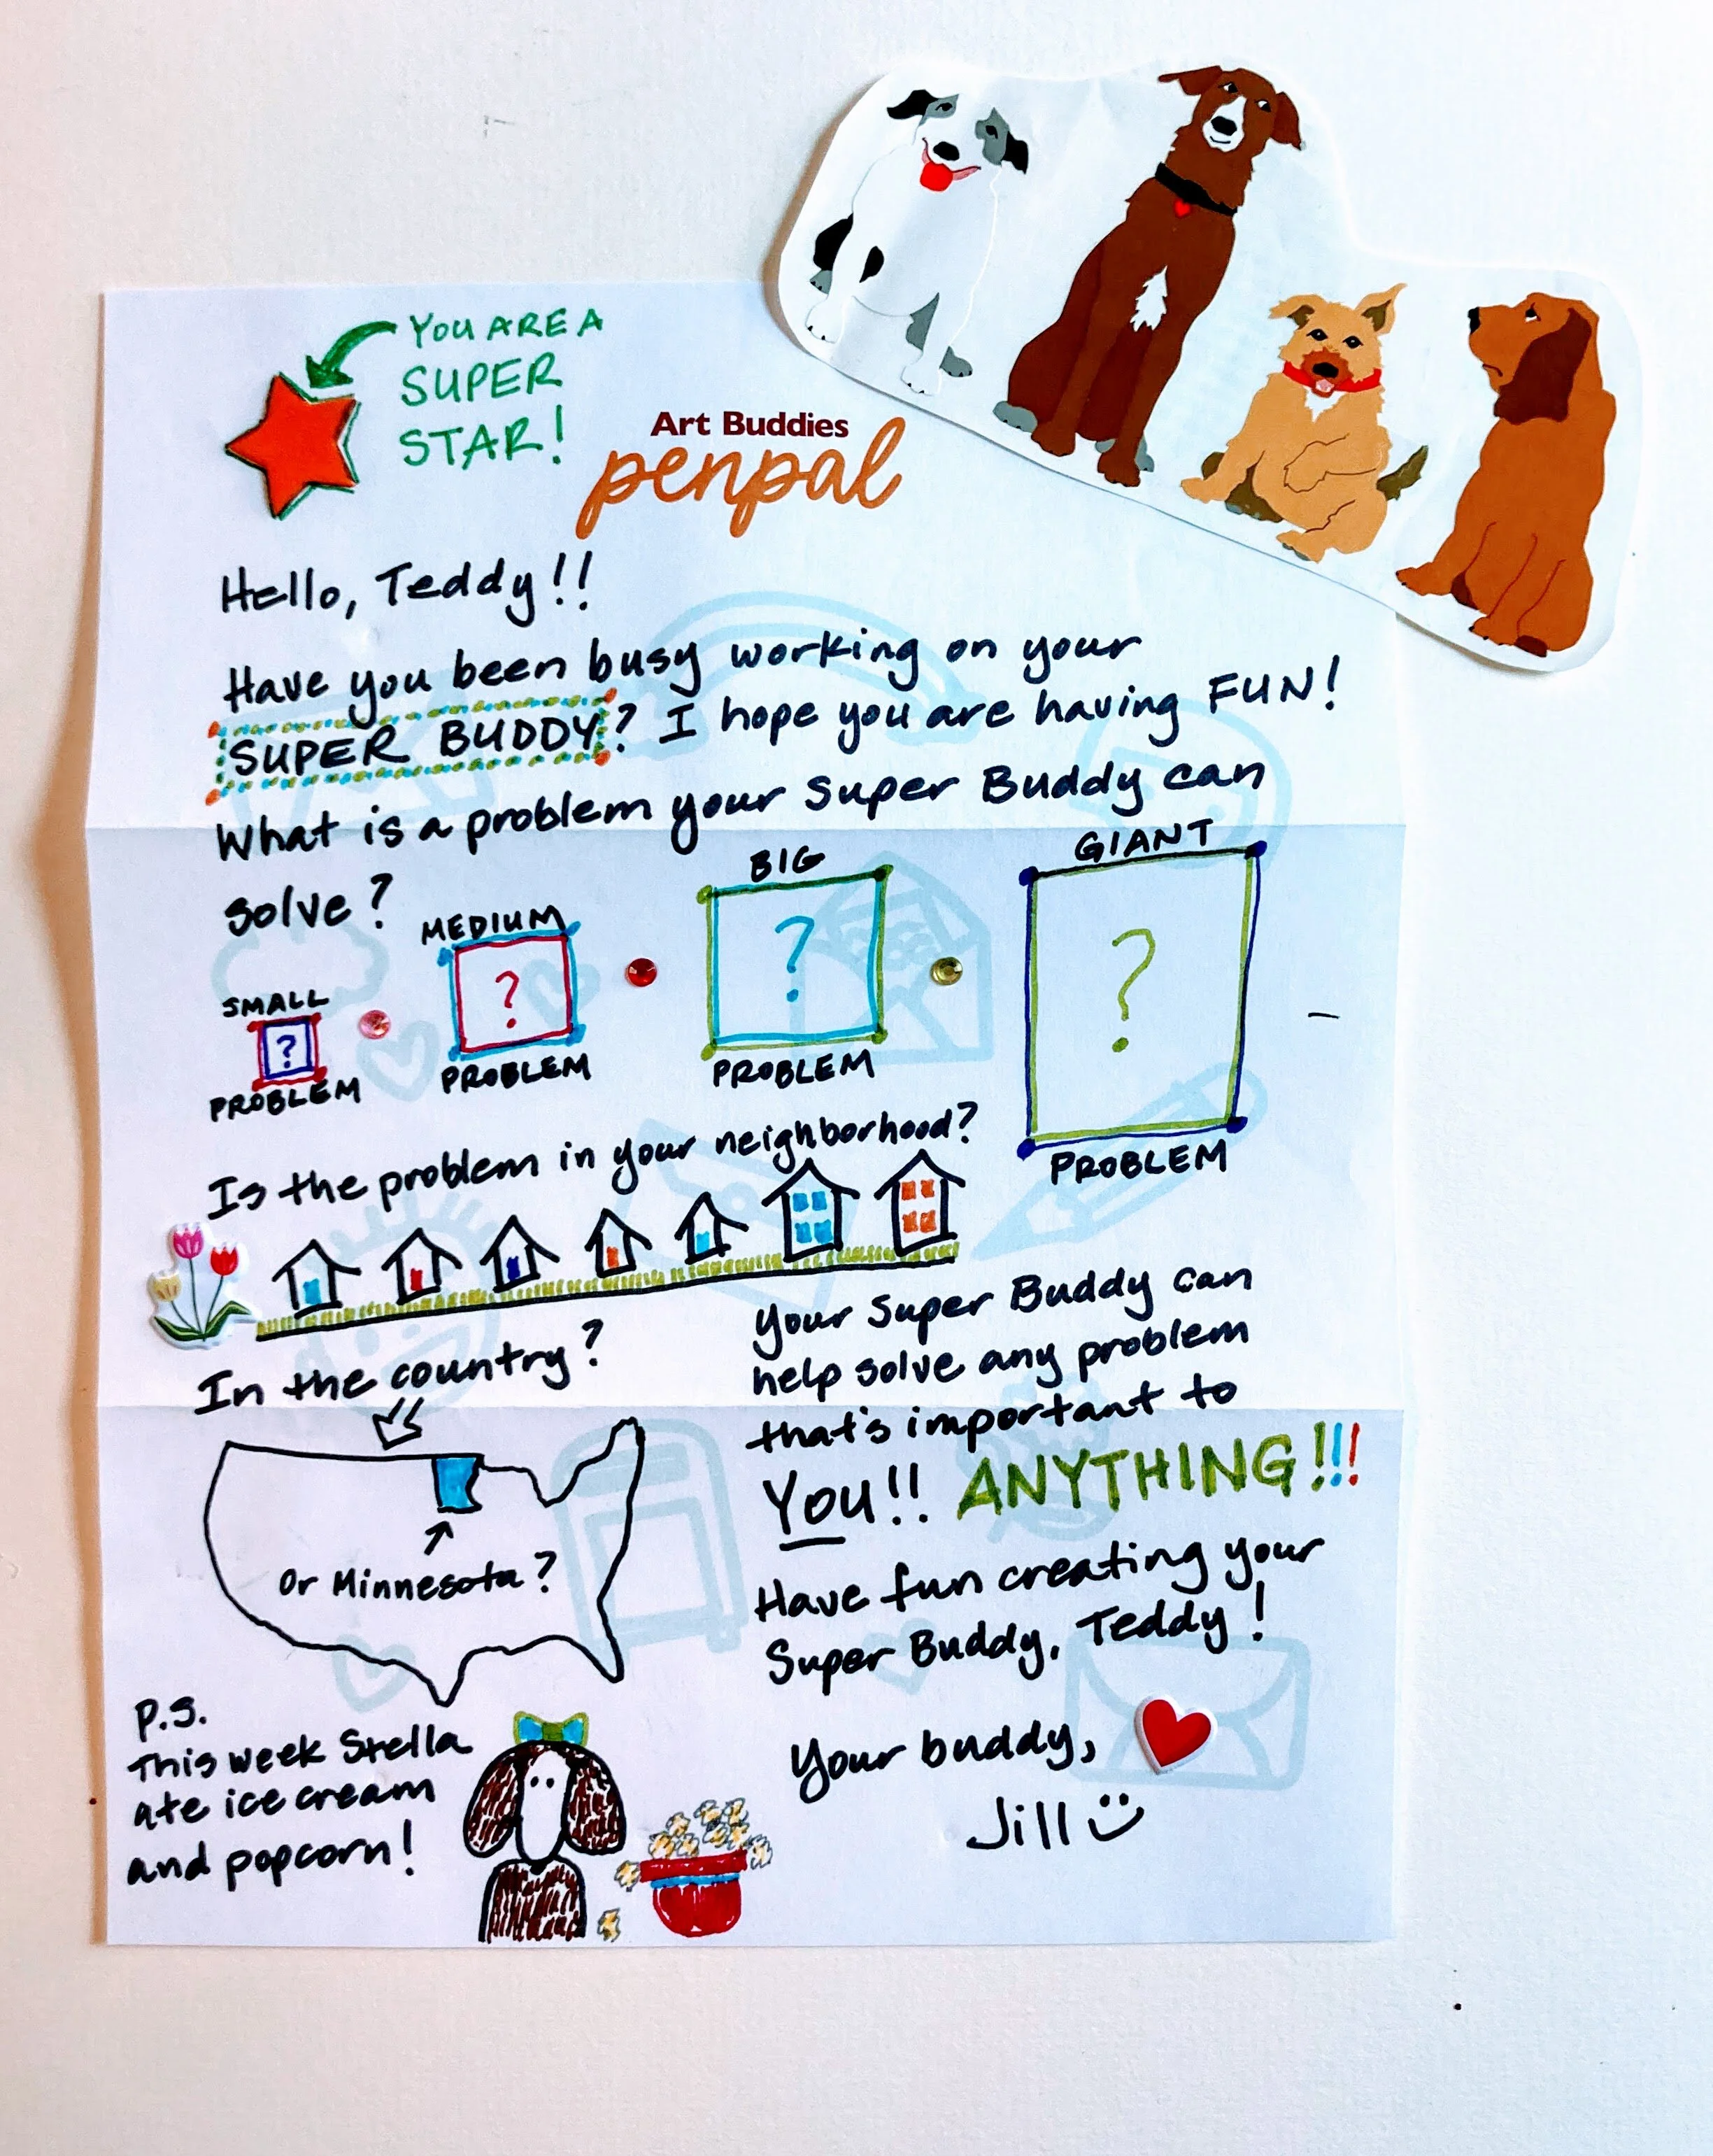 YOU ARE A
SUPER
STAR!
Art Buddies
penpal
Hello, Teddy!!
Have you been busy working on your
SUPER BUDDY? I hope you are having FUN!
What is a problem your Super Buddy can
solve?
SMALL
?
PROBLEM
MEDIUM
?
PROBLEM
BIG
?
PROBLEM
GIANT
?
PROBLEM
Is the problem in your neighborhood?
In the country?
Or Minnesota?
Your Super Buddy can
help solve any problem
that's important to
You!! ANYTHING!!!
Have fun creating your
Super Buddy, Teddy!
Your buddy,
Jill
P.S.
This week Stella
ate ice cream
and popcorn!